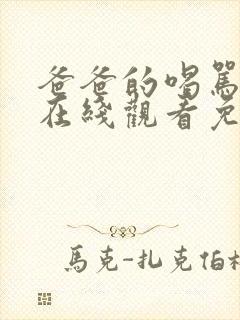 爸爸的喝罵
在綫觀看免
馬克-扎克伯